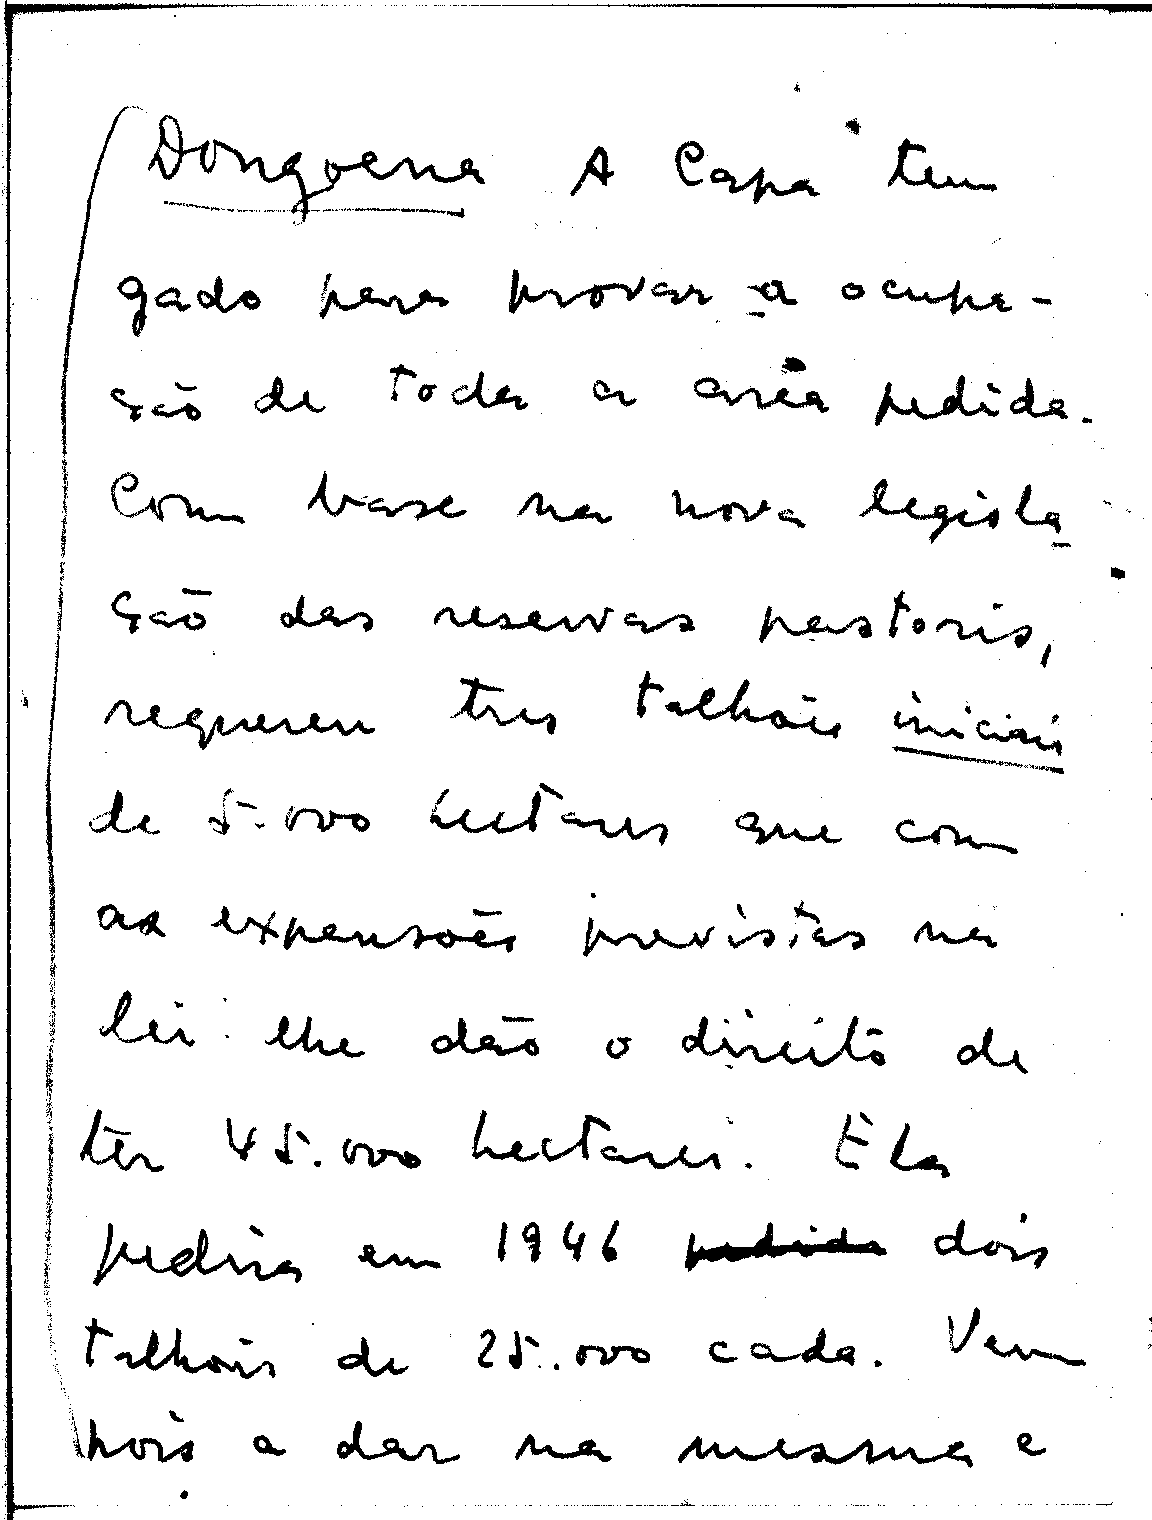 Dongoena A Capa tem
gado para provar a ocupa-
ção de toda a area pedida.
Com base na nova legisla
ção das reservas pastoris,
requereu tres talhões iniciais
de 5.000 hectares que com
as expansões previstas na
lei lhe dão o direito de
ter 45.000 hectares. Ela
pedira em 1946 pedida dois
talhois de 25.000 cada. Vem
pois a dar na mesma e